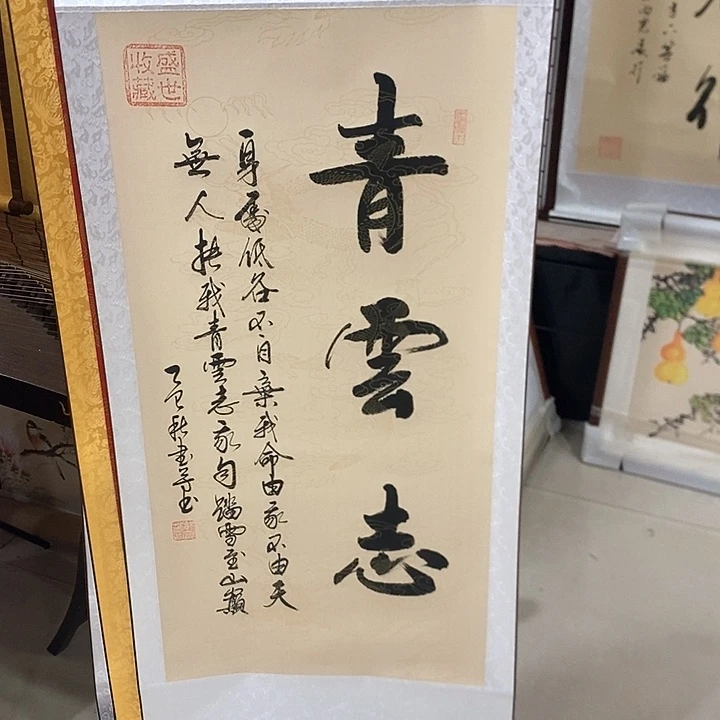 青雲志
身處低谷不自棄我命由我不由天
無人扶我青雲志我自踏雪至山巔
秋書
盛世收藏